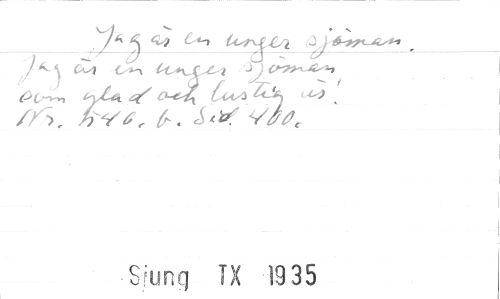 Jag är en unger sjöman.
Jag är en unger sjöman
som glad och lustig är!
Nr. 546. b. Sid. 400.
Sjung TX 1935